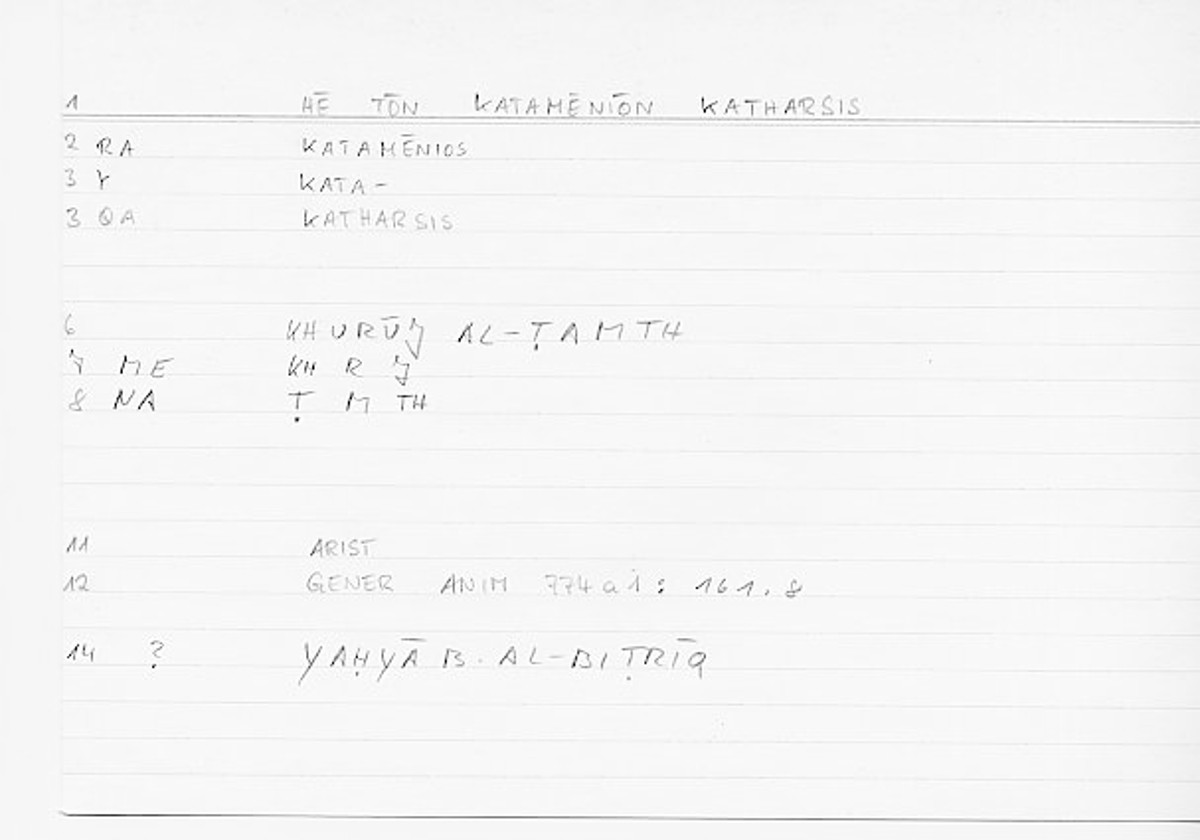 1 HĒ TŌN KATAMĒNIŌN KATHARSIS
2 RA KATAMĒNIOS
3 Y KATA-
3 QA KATHARSIS
6 KHURŪJ AL-ṬAMTH
7 ME KH R J
8 NA Ṭ M TH
11 ARIST
12 GENER ANIM 774a1: 161.8
14 ? YAḤYĀ B. AL-BIṬRĪQ